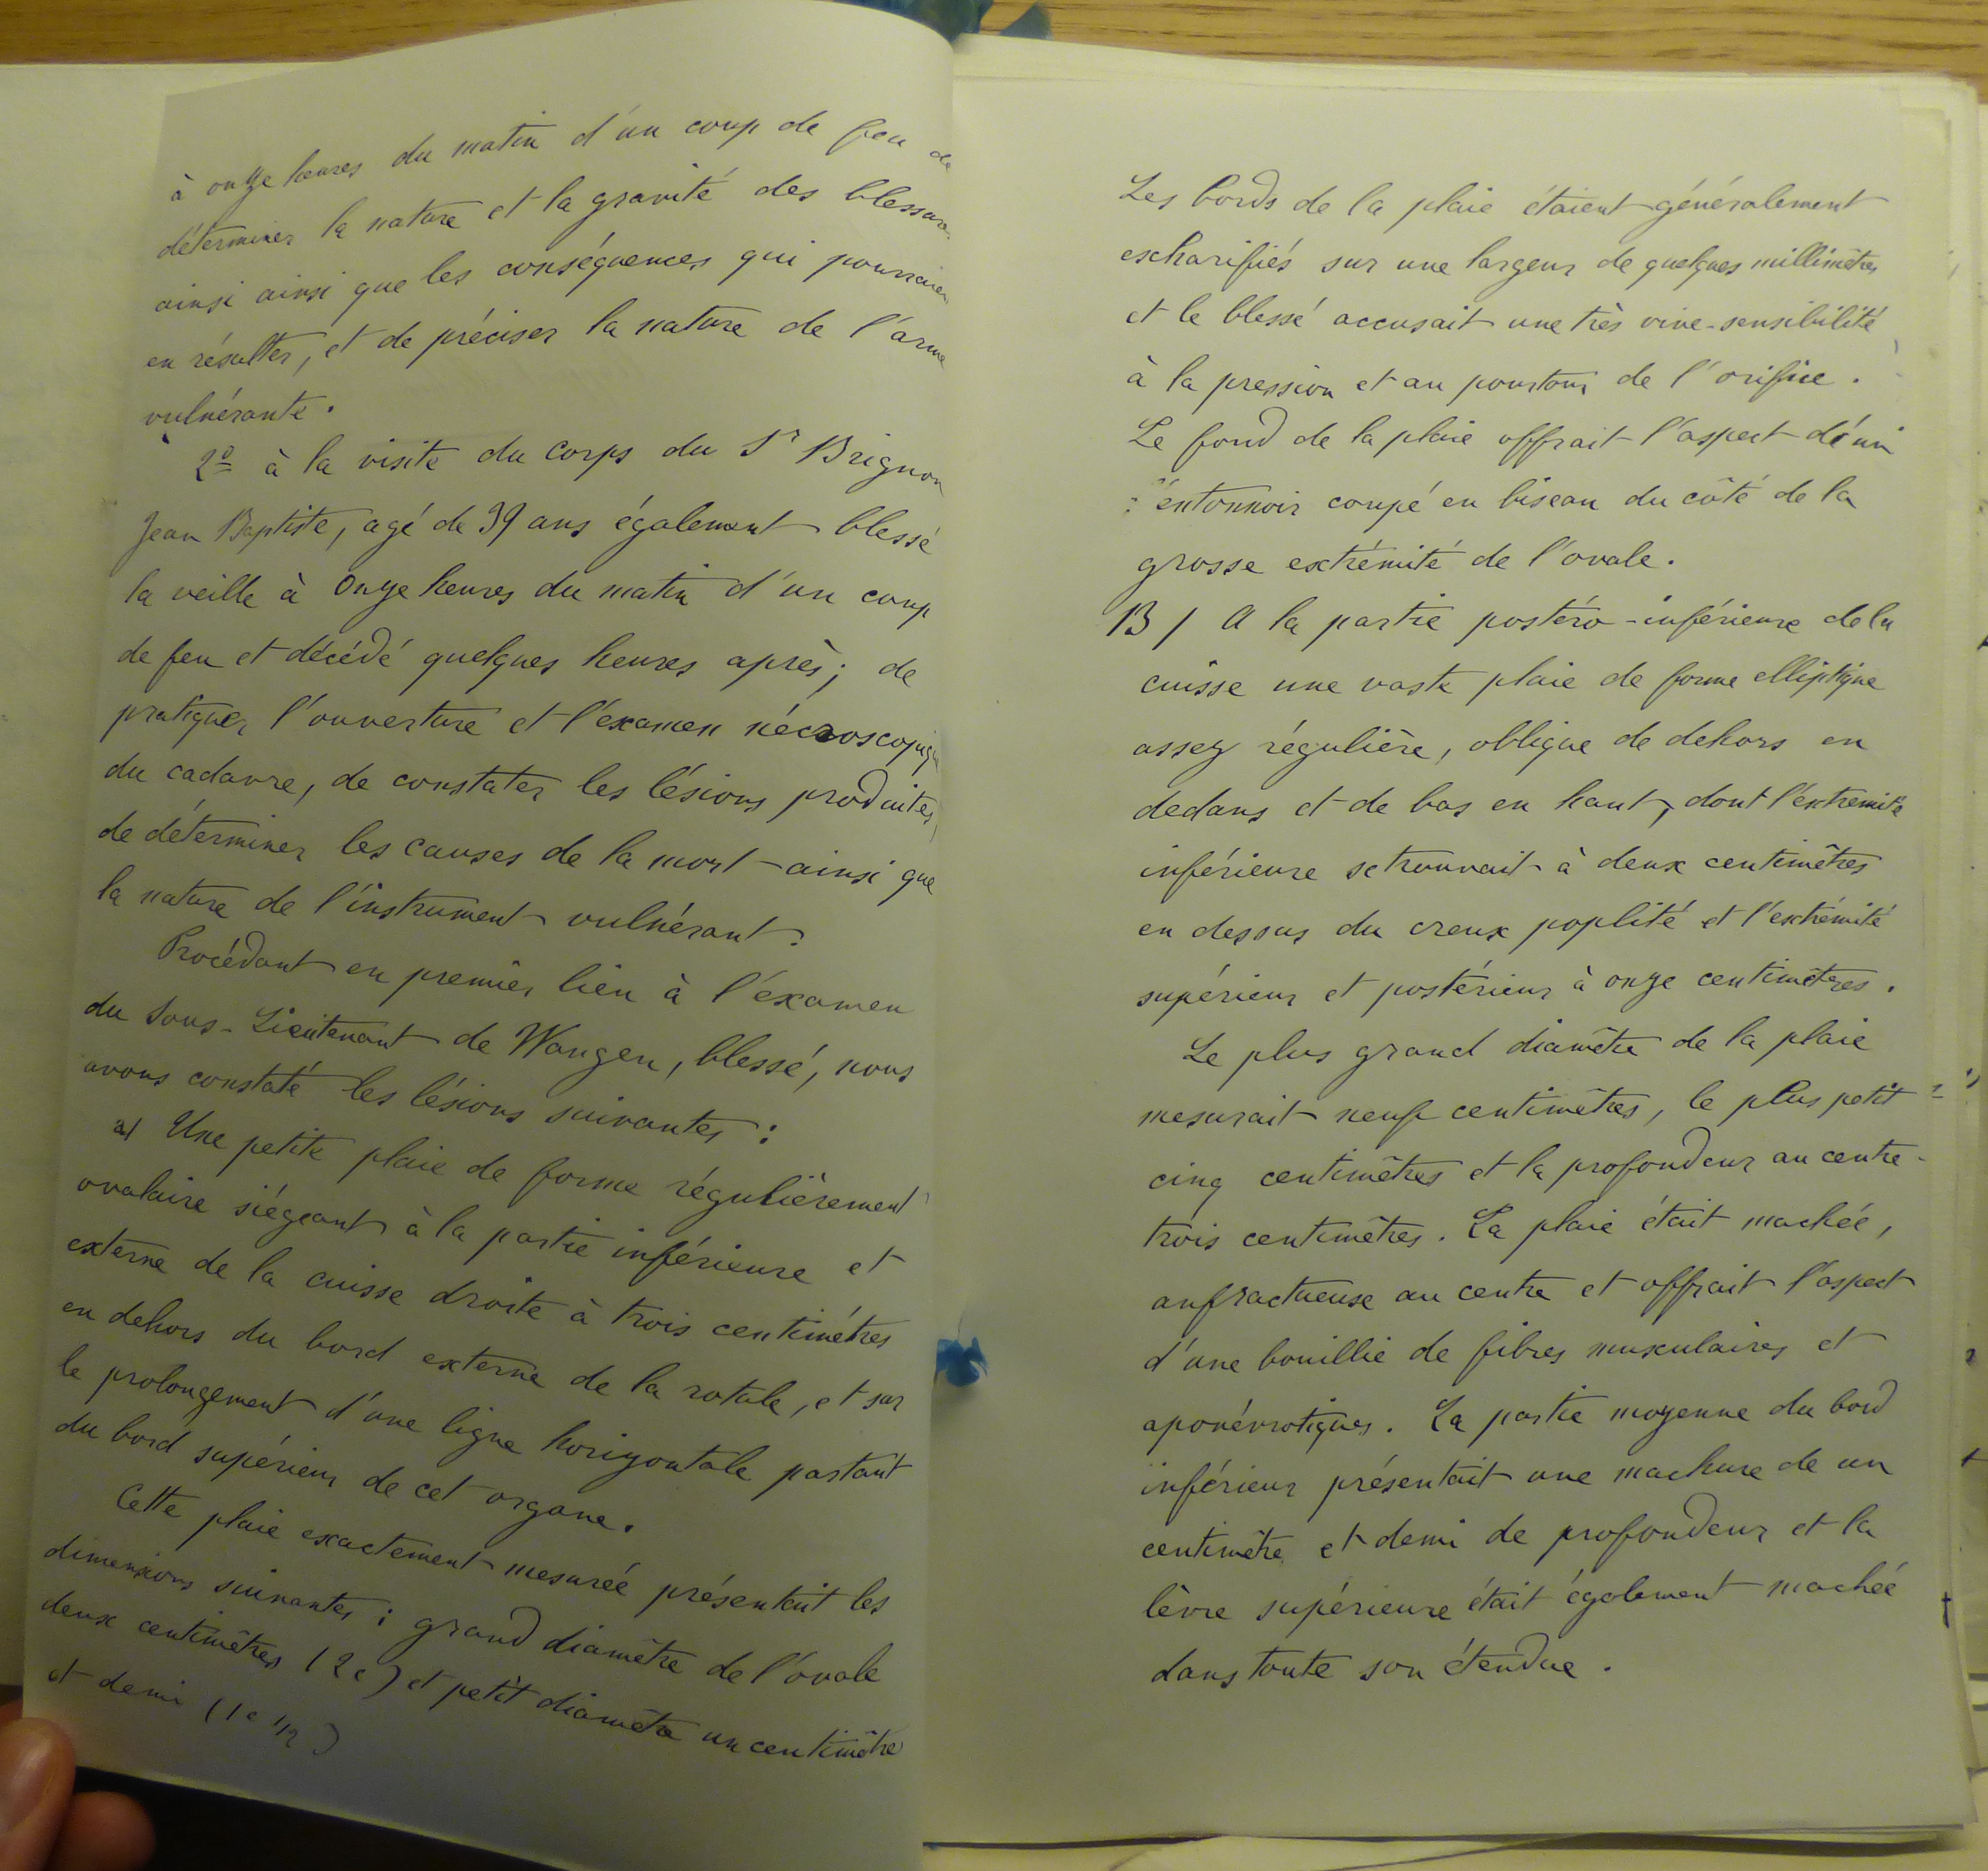 à onze heures du matin d'un coup de feu de
déterminer la nature et la gravité des blessures
ainsi ainsi que les conséquences qui pourraien
en résulter, et de préciser la nature de l'arme
vulnérante.
2º à la visite du corps du Sr Brignon
Jean Baptiste, agé de 39 ans également blessé
la veille à onze heures du matin d'un coup
de feu et décédé quelques heures après; de
pratiquer l'ouverture et l'éxamen nécroscopique
du cadavre, de constater les lésions produites,
de déterminer les causes de la mort ainsi que
la nature de l'instrument vulnérant.
Procédant en premier lieu à l'éxamen
du Sous-Lieutenant de Wangen, blessé, nous
avons constaté les lésions suivantes :
a/ Une petite plaie de forme régulièrement
ovalaire siégeant à la partie inférieure et
externe de la cuisse droite à trois centimètres
en dehors du bord externe de la rotule, et sur
le prolongement d'une ligne horizontale partant
du bord supérieur de cet organe.
Cette plaie exactement mesurée présentait les
dimensions suivantes : grand diamètre de l'ovale
deux centimètres (2c) et petit diamètre un centimètre
et demi (1c 1/2)
Les bords de la plaie étaient généralement
escharifiés sur une largeur de quelques millimètres
et le blessé accusait une très vive sensibilité
à la pression et au pourtour de l'orifice.
Le fond de la plaie offrait l'aspect d'un
entonnoir coupé en biseau du côté de la
grosse extrémité de l'ovale.
B/ A la partie postéro-inférieure de la
cuisse une vaste plaie de forme elliptique
assez régulière, oblique de dehors en
dedans et de bas en haut, dont l'extrémité
inférieure se trouvait à deux centimètres
en dessus du creux poplité et l'extrémité
supérieur et postérieur à onze centimètres.
Le plus grand diamètre de la plaie
mesurait neuf centimètres, le plus petit
cinq centimètres et la profondeur au centre
trois centimètres. La plaie était machée,
anfractueuse au centre et offrait l'aspect
d'une bouillie de fibres musculaires et
aponévrotiques. La partie moyenne du bord
inférieur présentait une machure de un
centimètre et demi de profondeur et la
lèvre supérieure était également machée
dans toute son étendue.